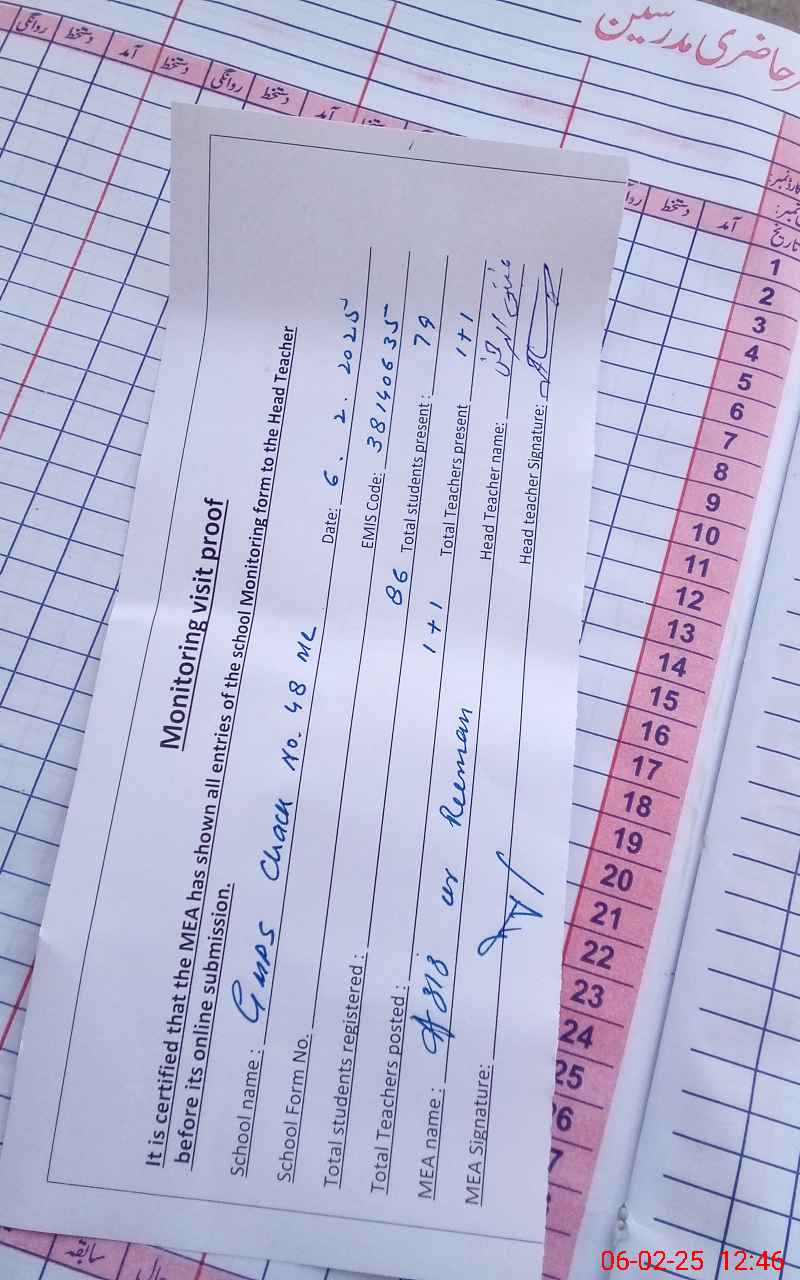 حاضری مدرسین
روانگی دستخط آمد دستخط روانگی دستخط آمد
دستخط آمد
تاریخ
Monitoring visit proof
It is certified that the MEA has shown all entries of the school Monitoring form to the Head Teacher
before its online submission.
School name : GMPS Chack No. 48 ML Date: 6 . 2 . 2025
School Form No. EMIS Code: 38140635
Total students registered : 86 Total students present : 79
Total Teachers posted : 1+1 Total Teachers present 1+1
MEA name : Aziz ur Reeman Head Teacher name:
MEA Signature: Head teacher Signature:
1
2
3
4
5
6
7
8
9
10
11
12
13
14
15
16
17
18
19
20
21
22
23
24
25
سابقہ
06-02-25 12:46